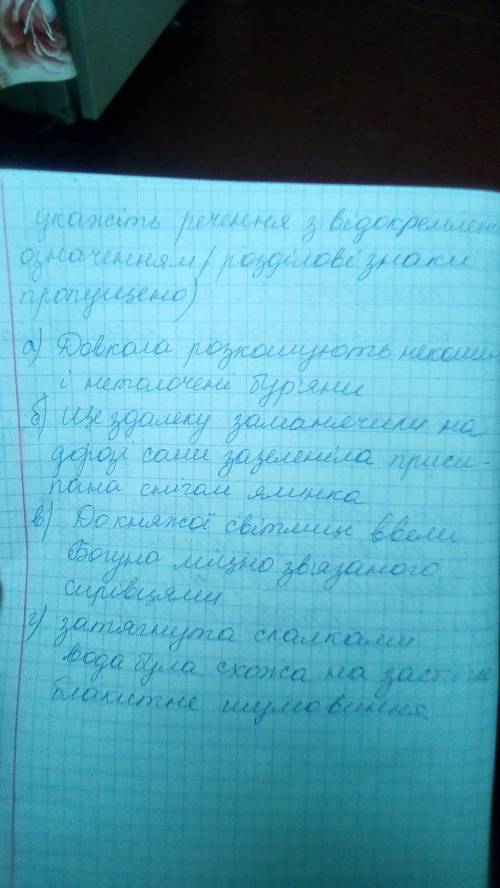 укажіть речення з відокремлен
означенням / розділові знаки
пропущено)
а) Довкола розкошують некошен
і нетолочені бур'яни
б) Ще здалеку заманячили на
дорозі сани зазеленіла приси-
пана снігом ялинка
в) До княжої світлиці ввели
Богуна міцно зв'язаного
сирівцями
г) затягнута спалками
вода була схожа на засти
блакитне шумовиння.